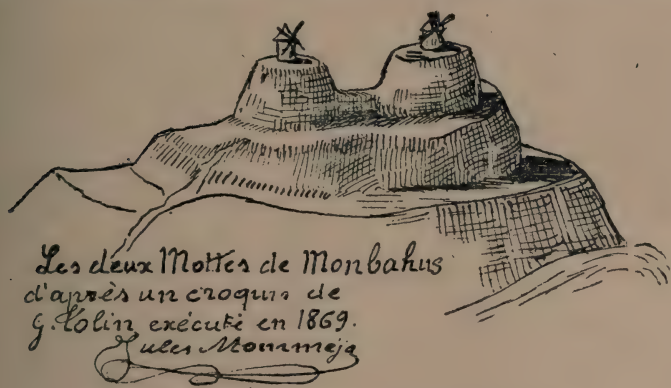 Les deux Mottes de Monbahus
d'après un croquis de
G. Colin exécuté en 1869.
Jules Mommeja